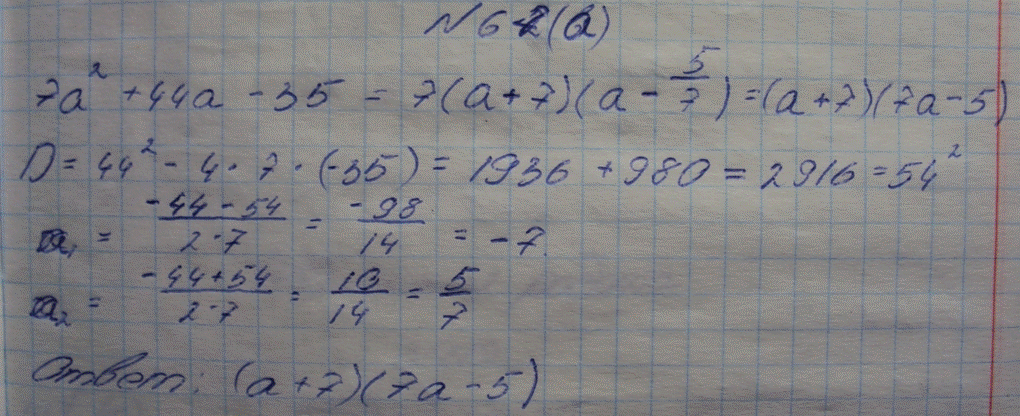 7a² + 44a - 35 = 7(a+7)(a - 5/7) = (a+7)(7a-5)
D = 44² - 4 · 7 · (-35) = 1936 + 980 = 2916 = 54²
a₁ = (-44 - 54)/(2·7) = -98/14 = -7.
a₂ = (-44+54)/(2·7) = 10/14 = 5/7
Ответ: (a+7)(7a-5)